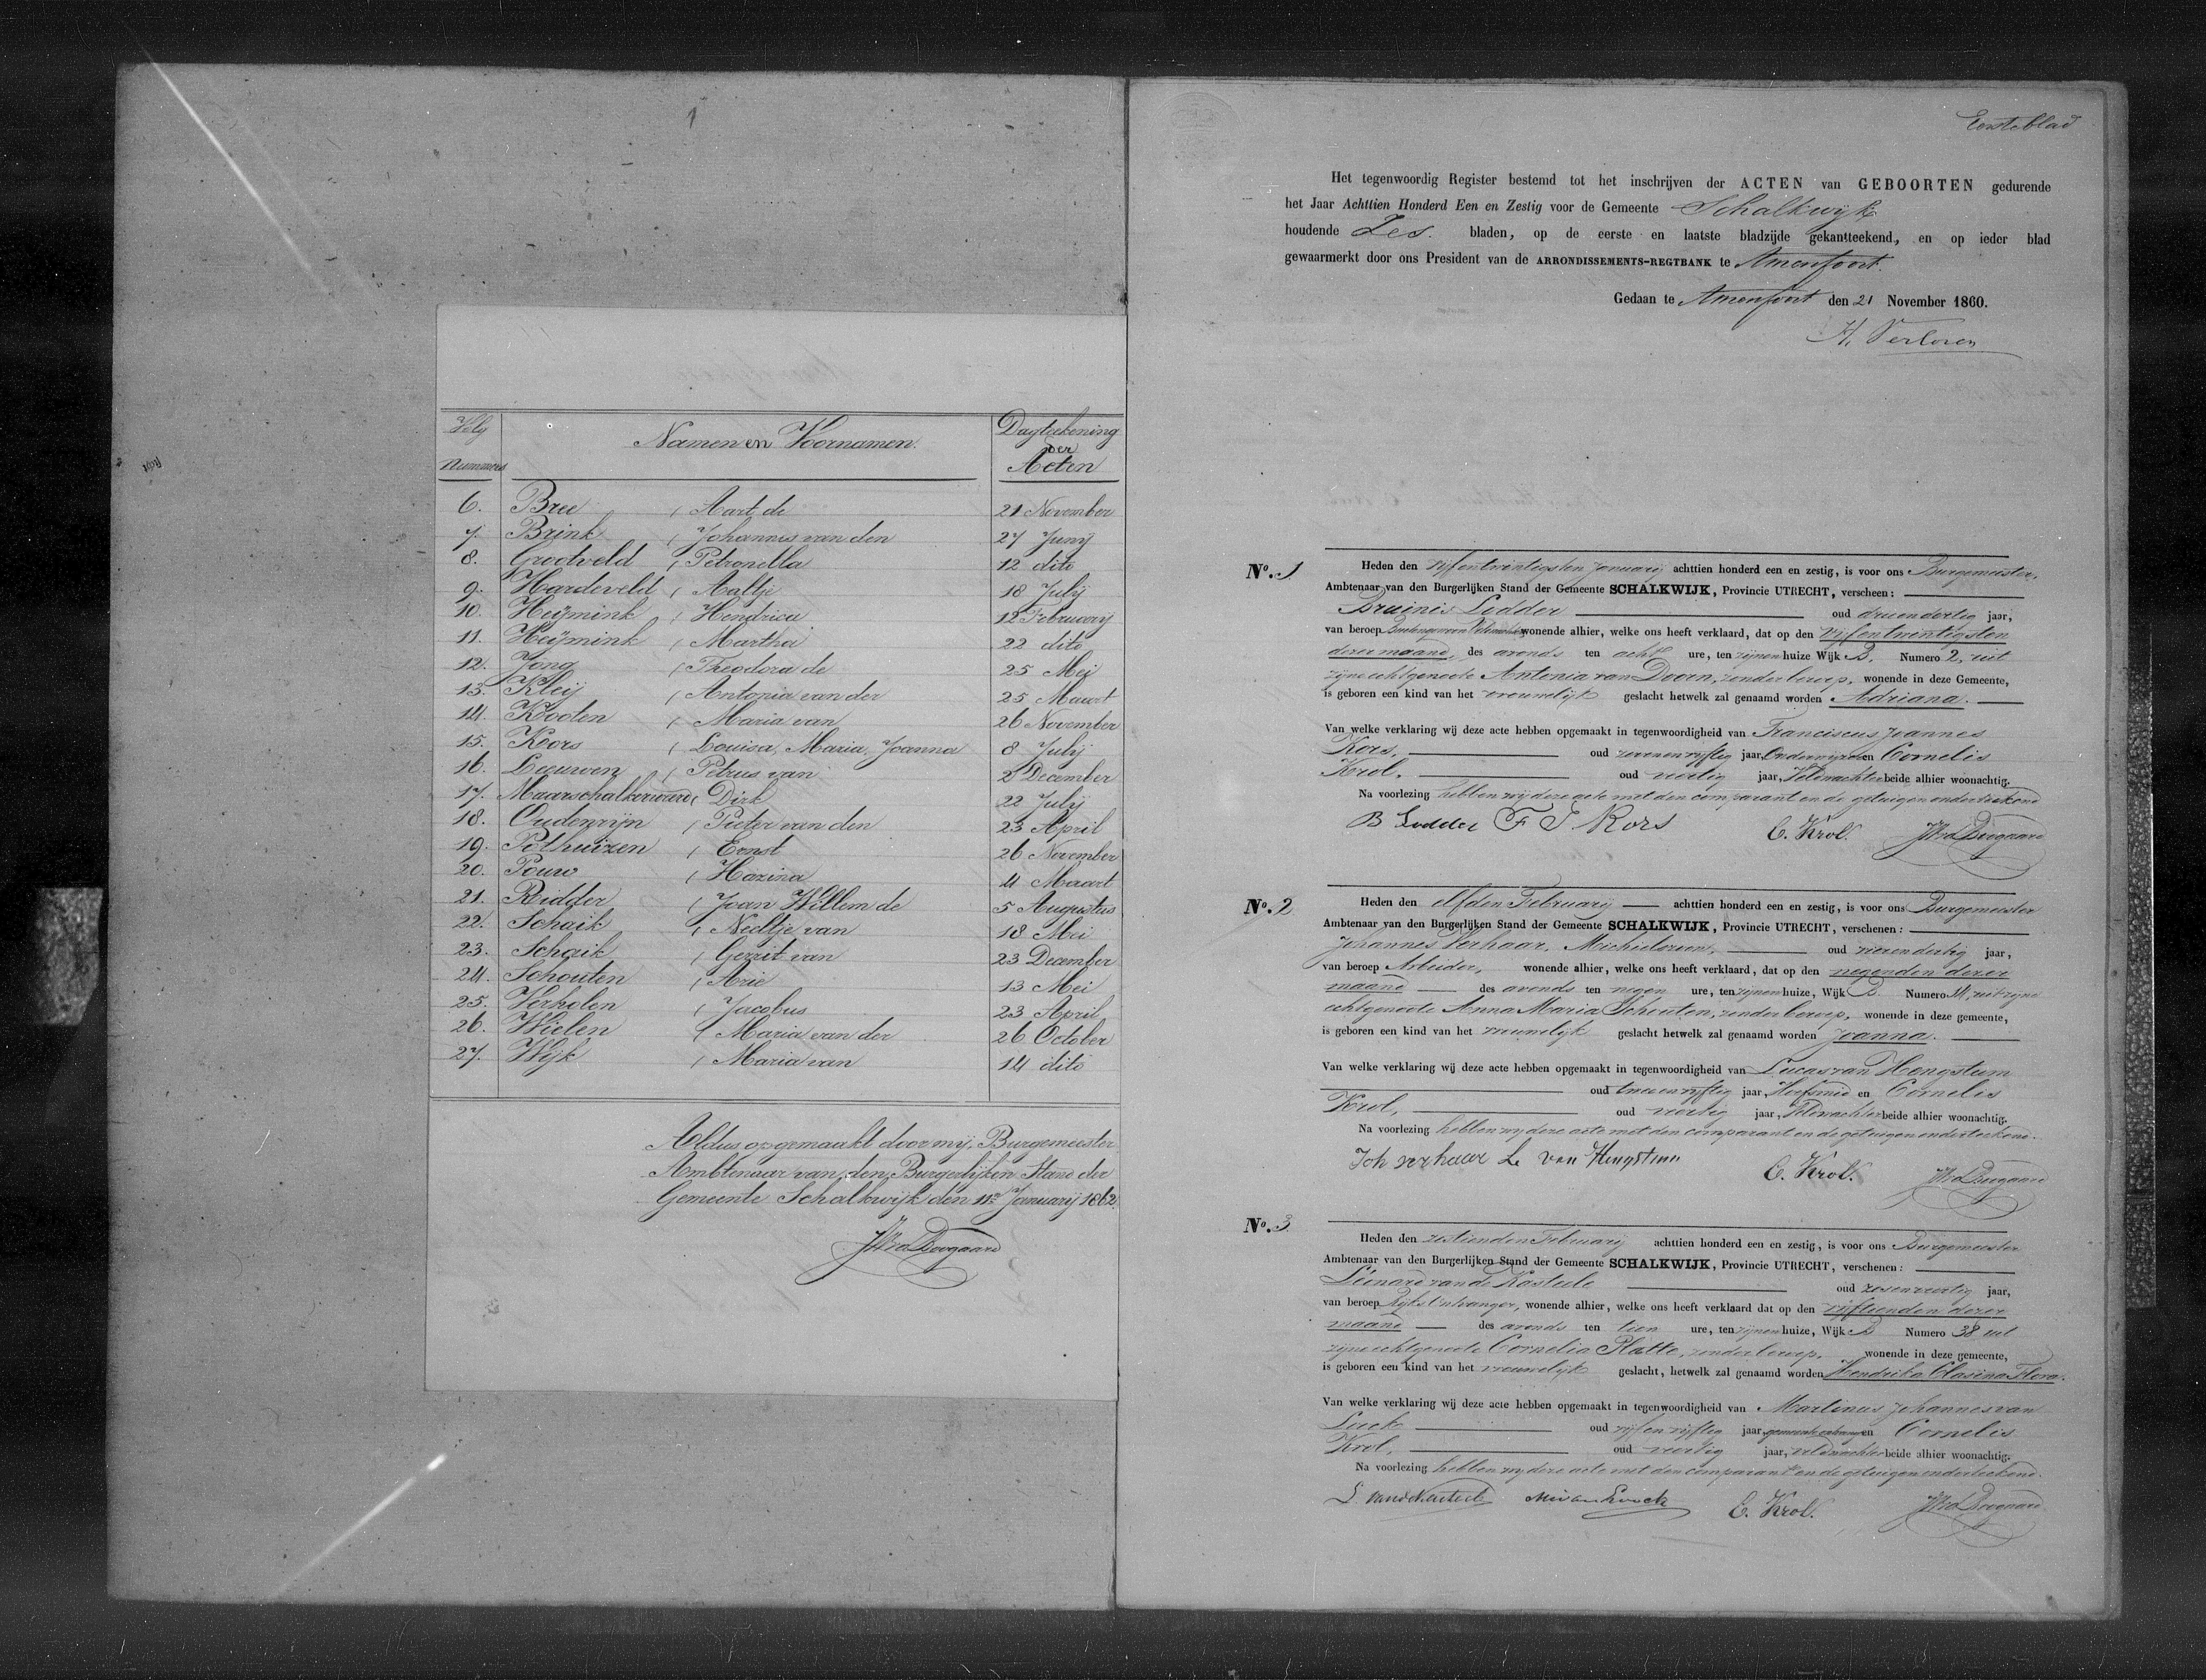 1
Volg
Nummers
Namen en Voornamen.
Dagteekening
der
Acten
6. Bree , Aart de 21 November
7. Brink , Johannes van den 27 Junij
8. Grootveld , Petronella 12 dito
9. Hardeveld , Aaltje 18 Julij
10. Heijmink , Hendrica 12 February
11. Heijmink , Martha 22 dito
12. Jong , Theodora de 25 Mei
13. Kleij , Antonia van der 25 Maart
14. Kooten , Maria van 26 November
15. Kors , Louisa, Maria, Joanna 8 Julij
16. Leeuwen , Petrus van 2 December
17. Maarschalkerweerd, Dirk 22 Julij
18. Oudenrijn , Pieter van den 23 April
19. Pothuizen , Ernst 26 November
20. Pouw , Hazina 4 Maart
21. Ridder , Joan Willem de 5 Augustus
22. Schaik , Neeltje van 18 Mei
23. Schaik , Gerrit van 23 December
24. Schouten , Arie 13 Mei
25. Verkolen , Jacobus 23 April
26. Wielen , Maria van der 26 October
27. Wijk , Maria van 14 dito
Aldus opgemaakt door mij, Burgemeester
Ambtenaar van den Burgerlijken Stand der
Gemeente Schalkwijk den 11e January 1862.
Eersteblad
Het tegenwoordig Register bestemd tot het inschrijven der ACTEN van GEBOORTEN gedurende
het Jaar Achttien Honderd Een en Zestig voor de Gemeente Schalkwijk
houdende Zes. bladen, op de eerste en laatste bladzijde gekantteekend, en op ieder blad
gewaarmerkt door ons President van de ARRONDISSEMENTS-REGTBANK te Amersfoort.
Gedaan te Amersfoort den 21 November 1860.
H. Verloren
No. 1
Heden den vijfentwintigsten January achttien honderd een en zestig, is voor ons Burgemeester,
Ambtenaar van den Burgerlijken Stand der Gemeente SCHALKWIJK, Provincie UTRECHT, verscheen:
Bruinis Lodder oud drieendertig jaar,
van beroep wonende alhier, welke ons heeft verklaard, dat op den vijfentwintigsten
dezer maand, des avonds ten acht ure, ten zijnen huize Wijk B. Numero 2, uit
zijne echtgenoote Antonia van Doorn, zonder beroep, wonende in deze Gemeente,
is geboren een kind van het vrouwelijk geslacht hetwelk zal genaamd worden Adriana.
Van welke verklaring wij deze acte hebben opgemaakt in tegenwoordigheid van Franciscus Joannes
Kors, oud zevenenvijftig jaar, Onderwijzer en Cornelis
Krol. oud veertig jaar, Veldwachter beide alhier woonachtig.
Na voorlezing hebben wij deze acte met den comparant en de getuigen onderteekend
B Lodder F J Kors C. Krol.
No. 2
Heden den elfden February achttien honderd een en zestig, is voor ons Burgemeester
Ambtenaar van den Burgerlijken Stand der Gemeente SCHALKWIJK, Provincie UTRECHT, verschenen:
Johannes Verhaar, Michielszoon, oud vierendertig jaar,
van beroep Arbeider, wonende alhier, welke ons heeft verklaard, dat op den negenden dezer
maand des avonds ten negen ure, ten zijnen huize, Wijk B. Numero 14, uit zijne
echtgenoote Anna Maria Schouten, zonder beroep, wonende in deze gemeente,
is geboren een kind van het vrouwelijk geslacht hetwelk zal genaamd worden Joanna.
Van welke verklaring wij deze acte hebben opgemaakt in tegenwoordigheid van Lucas van Hengstum
oud tweeenvijftig jaar, Hoefsmid en Cornelis
Krol, oud veertig jaar, Veldwachter beide alhier woonachtig.
Na voorlezing hebben wij deze acte met den comparant en de getuigen onderteekend.
Joh verhaar L van Hengstum C. Krol.
No. 3
Heden den zestienden February achttien honderd een en zestig, is voor ons Burgemeester
Ambtenaar van den Burgerlijken Stand der Gemeente SCHALKWIJK, Provincie UTRECHT, verschenen:
Lienard van de Kasteele oud zevenveertig jaar,
van beroep Rijks Ontvanger, wonende alhier, welke ons heeft verklaard dat op den vijftienden dezer
maand des avonds ten tien ure, ten zijnen huize, Wijk B Numero 38 uit
zijne echtgenoote Cornelia Platte, zonder beroep, wonende in deze gemeente,
is geboren een kind van het vrouwelijk geslacht, hetwelk zal genaamd worden Hendrika Clasina Flora.
Van welke verklaring wij deze acte hebben opgemaakt in tegenwoordigheid van Martinus Johannes van
oud vijfenvijftig jaar en Cornelis
Krol, oud veertig jaar, veldwachter beide alhier woonachtig.
Na voorlezing hebben wij deze acte met den comparant en de getuigen onderteekend.
C. Krol.